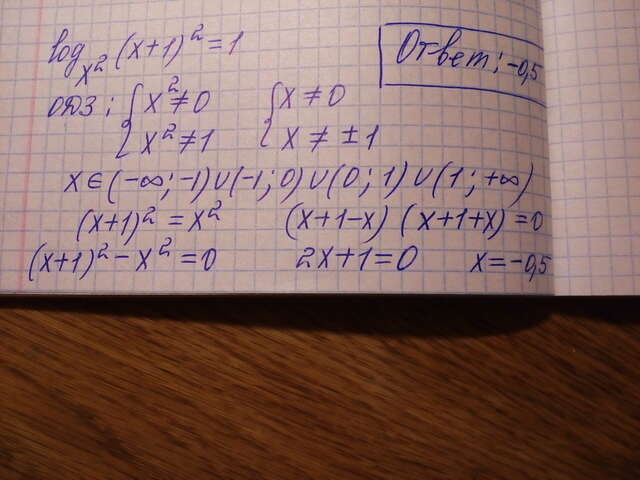 log_{x²}(x+1)² = 1
Ответ: -0,5
ОДЗ: { x² ≠ 0 { x ≠ 0
x² ≠ 1 x ≠ ±1
x ∈ (-∞; -1) ∪ (-1; 0) ∪ (0; 1) ∪ (1; +∞)
(x+1)² = x² (x+1-x) (x+1+x) = 0
(x+1)² - x² = 0 2x+1 = 0 x = -0,5